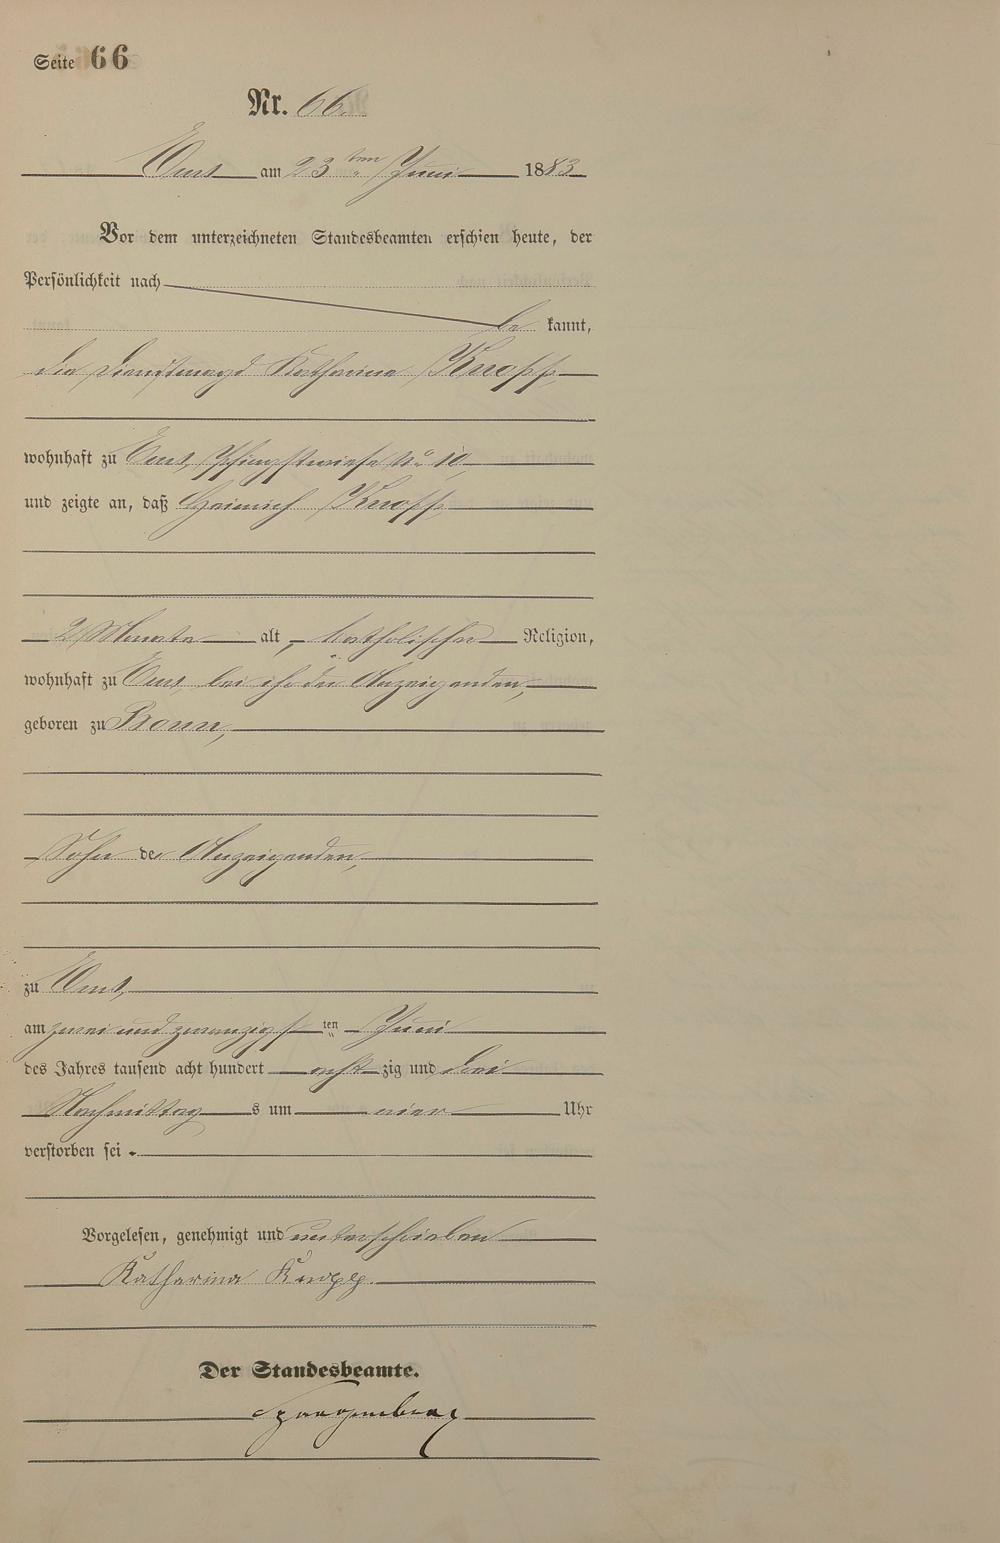 Seite 66
Nr. 66.
Ems am 23ten Juni 1883
Vor dem unterzeichneten Standesbeamten erschien heute, der
Persönlichkeit nach
be kannt,
die Dienstmagd Katharina Knopp,
wohnhaft zu Ems, Pfingstwiese No 10
und zeigte an, daß Heinrich Knopp,
2 Monate alt, katholischer Religion,
wohnhaft zu Ems bei der Anzeigenden,
geboren zu Bonn,
Sohn der Anzeigenden,
zu Ems,
am zwei und zwanzigsten Juni
des Jahres tausend acht hundert acht zig und drei
Nachmittags um vier Uhr
verstorben sei.
Vorgelesen, genehmigt und unterschrieben
Katharina Knopp.
Der Standesbeamte.
Spangenberg